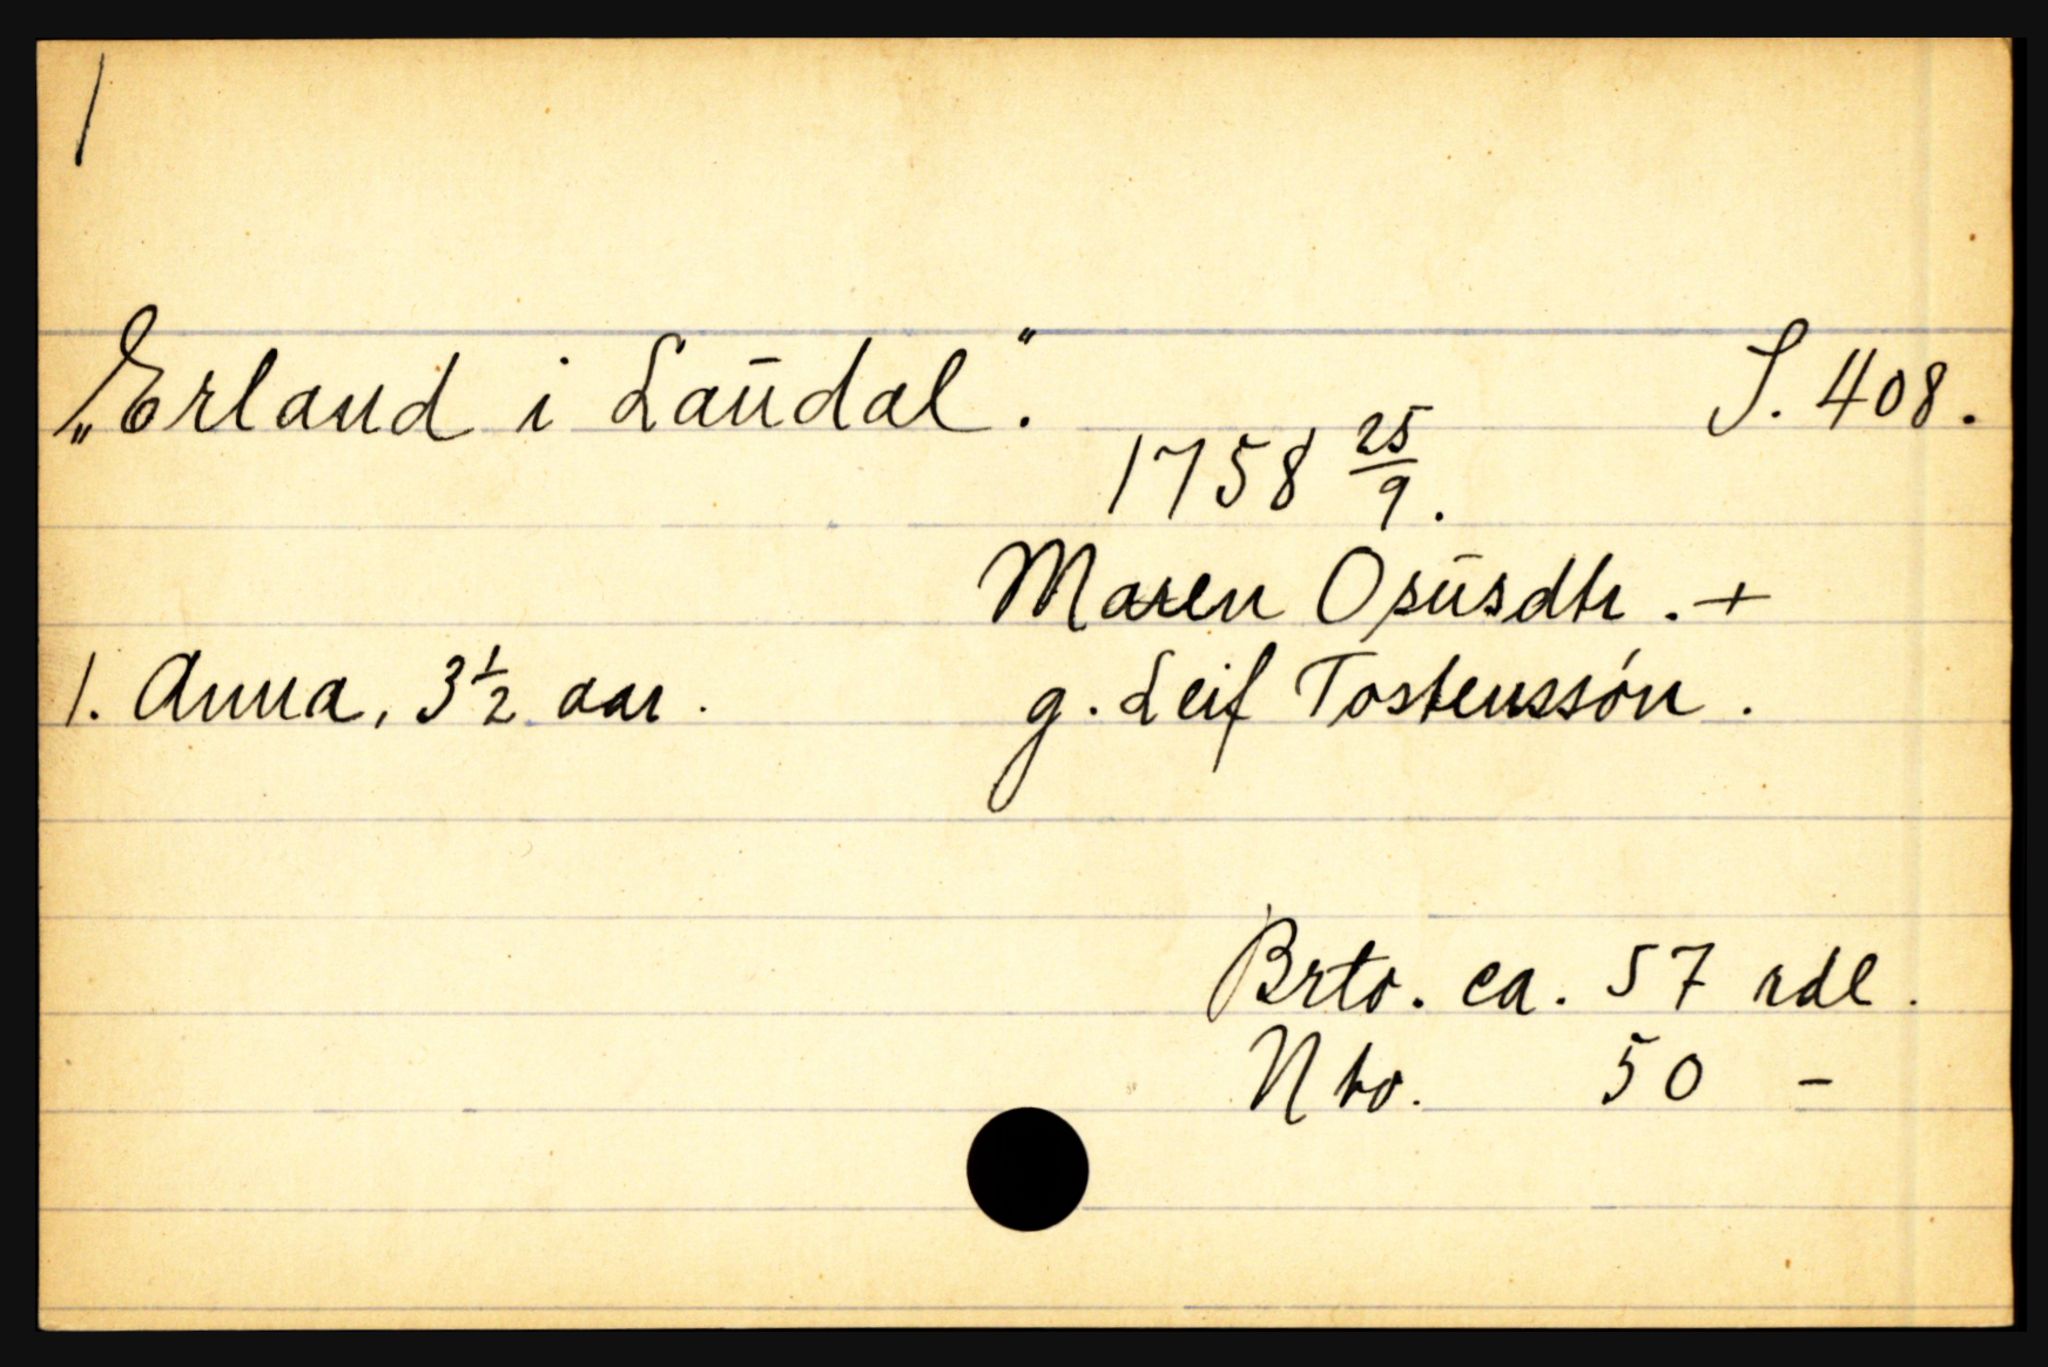 1
„Erland i Laūdal“. S. 408.
1758 25/9.
Maren Osūsdtr. +
1. Anna, 3 1/2 aar. g. Leif Tostenssón.
Brto. ca. 57 rdl.
Nto. 50 -